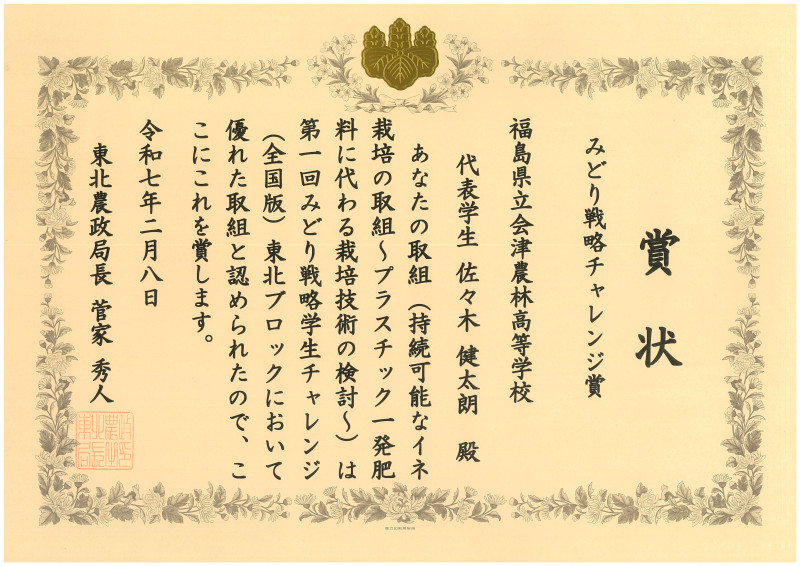 賞状
みどり戦略チャレンジ賞
福島県立会津農林高等学校
代表学生 佐々木 健太朗 殿
あなたの取組（持続可能なイネ
栽培の取組～プラスチック一発肥
料に代わる栽培技術の検討～）は
第一回みどり戦略学生チャレンジ
（全国版）東北ブロックにおいて
優れた取組と認められたので、こ
こにこれを賞します。
令和七年二月八日
東北農政局長 菅家 秀人